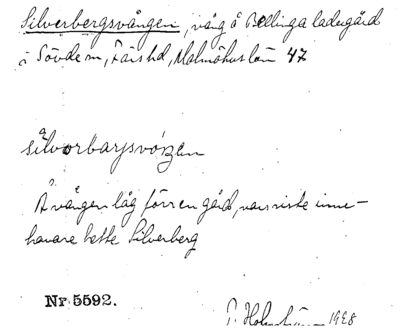 Silverbergsvången, vång å Bellinga ladugård
i Sövde sn, Färs hd, Malmöhus län 47
Å vången låg förr en gård, vars siste inne-
havare hette Silverberg
Nr 5592.
1928